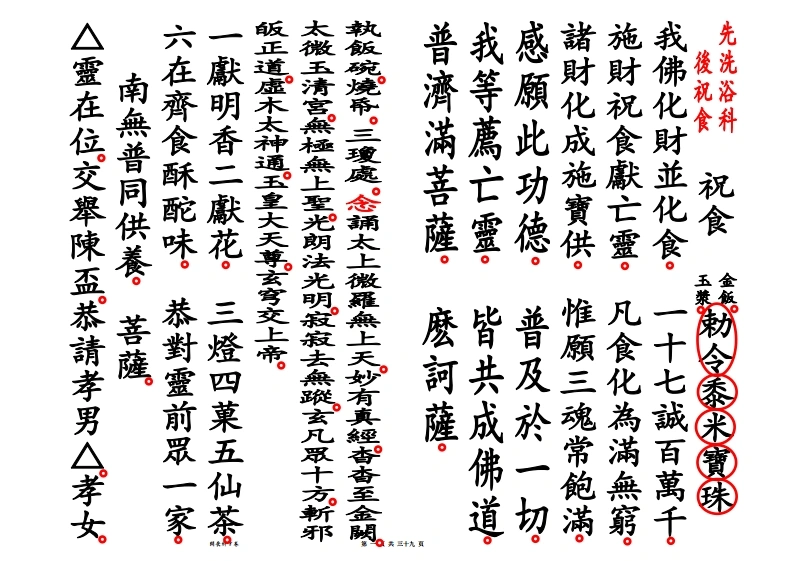 先洗浴科
後祝食
祝食
金飯
玉漿
勅令黍米寶珠
我佛化財並化食。一十七誠百萬千
施財祝食獻亡靈。凡食化為滿無窮
諸財化成施寶供。惟願三魂常飽滿
感願此功德。普及於一切
我等薦亡靈。皆共成佛道
普濟滿菩薩。麽訶薩。
執飯碗燒帋。三瓊處。念誦太上微羅無上天。妙有真經。杳杳至金闕。
太微玉清宮。無極無上聖。光朗法光明。寂寂去無蹤。玄凡眾十方。斬邪
皈正道。虛木太神通。玉皇大天尊。玄穹交上帝。
一獻明香二獻花。三燈四菓五仙茶。
六在齊食酥酡味。恭對靈前眾一家。
南無普同供養。菩薩。
△靈在位。交舉陳盃。恭請孝男△。孝女。
第一頁 共三十九頁